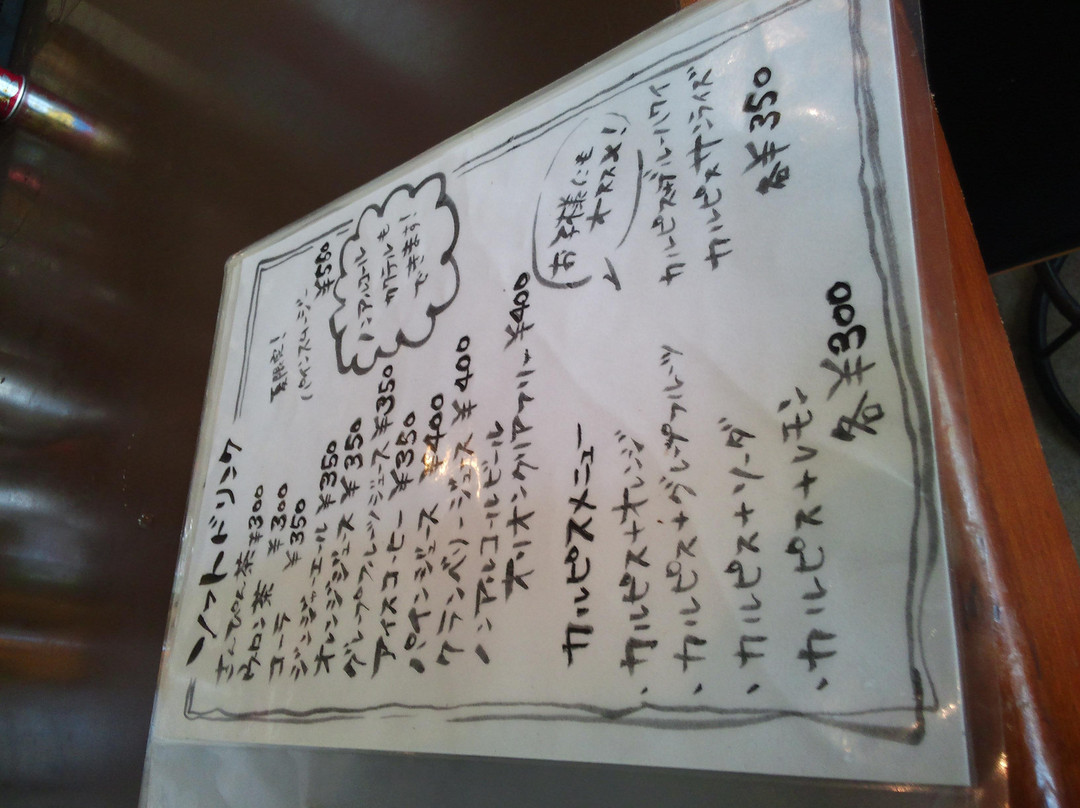 ソフトドリンク
さんぴん茶 ¥300
ウーロン茶 ¥300
コーラ ¥350
ジンジャーエール ¥350
オレンジジュース ¥350
グレープフルーツジュース ¥350
アイスコーヒー ¥350
パインジュース ¥400
クランベリージュース ¥400
ノンアルコールビール
オリオンクリアフリー ¥400
夏限定!
¥580
ノンアルコール
カクテルも
できます!
カルピスメニュー
お子様にも
オススメ!
・カルピス+オレンジ
・カルピス+グレープフルーツ
・カルピス+ソーダ
・カルピス+レモン
各¥300
カルピスブルーハワイ
カルピスサンライズ
各¥350